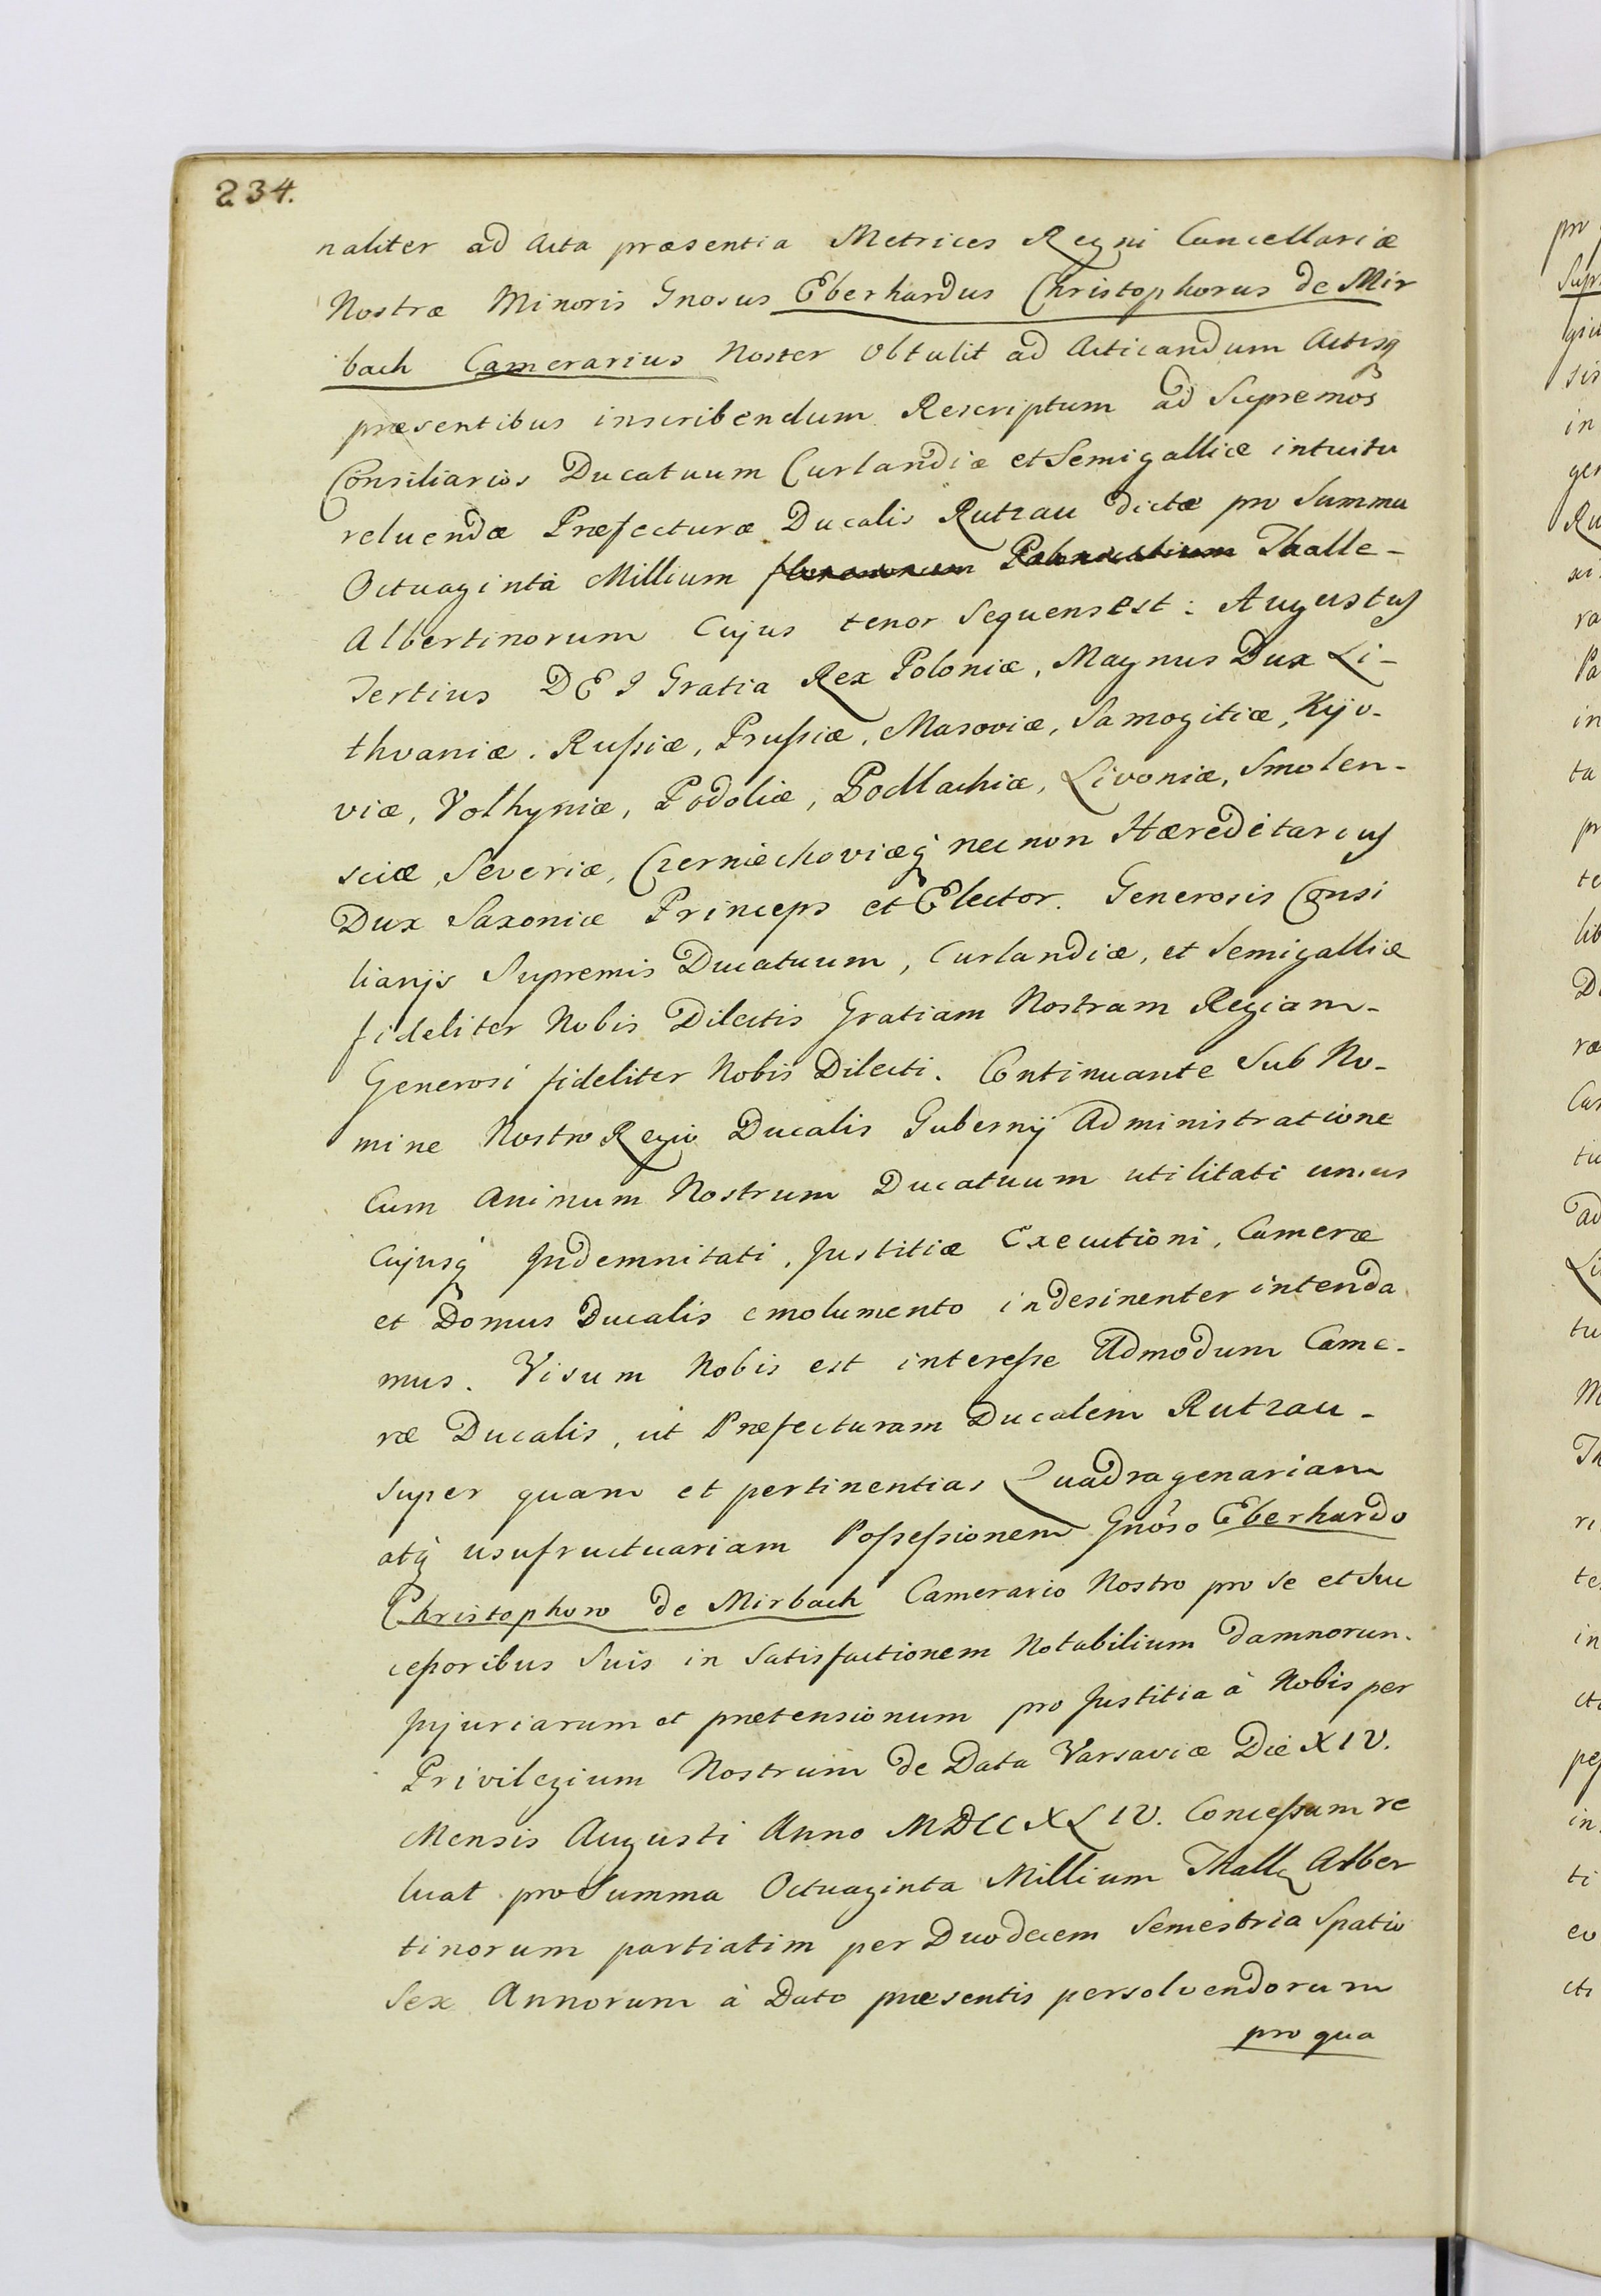 234.
naliter ad Acta præsentia Metrices Regni Cancellariæ
Nostræ Minoris Gnosus Eberhardus Christophorus de Mir
bach Camerarius Noster Obtulit ad Acticandum Actisq
præsentibus inscribendum Rescriptum ad Supremos
Consiliarios Ducatuum Curlandiæ et Semigalliæ intuitu
reluendæ Præfecturæ Ducalis Rutzau dictæ pro Summa
Octuaginta Millium Thalle-
Albertinorum Cujus tenor Sequens est: Augustus
Tertius DEI Gratia Rex Poloniæ, Magnus Dux Li-
thvaniæ. Russiæ, Prussiæ, Masoviæ, Samogitiæ, Kijo-
viæ, Volhyniæ, Podoliæ, Podlachiæ, Livoniæ, Smolen-
sciæ, Severiæ, Czerniechoviæq nec non Hæreditarius
Dux Saxoniæ Princeps et Elector. Generosis Consi
liarijs Supremis Ducatuum, Curlandiæ, et Semigalliæ
fideliter Nobis Dilectis Gratiam Nostram Regiam-
Generosi fideliter Nobis Dilecti. Continuante Sub No-
mine Nostro Regio Ducalis Gubernij Administratione
Cum Animum Nostrum Ducatuum utilitati unius
Cujusq Indemnitati, Justitiæ Executioni, Cameræ
et Domus Ducalis emolumento indesinenter intenda
mus. Visum Nobis est interesse Admodum Came-
ræ Ducalis, ut Præfecturam Ducalem Rutzau-
super quam et pertinentias Quadragenariam
atq usufructuariam Possessionem Gnoso Eberhardo
Christophoro de Mirbach Camerario Nostro pro se et Suc
cessoribus Suis in Satisfactionem Notabilium damnorum.
Injuriarum et prætensionum pro Justitia à Nobis per
Privilegium Nostrum de Data Varsaviæ Die XIV.
Mensis Augusti Anno MDCCXLIV. Concessam re
luat pro Summa Octuaginta Millium Thall Alber
tinorum partiatim per Duodecem Semestria Spatio
Sex Annorum à Dato præsentis persolvendorum
pro qua